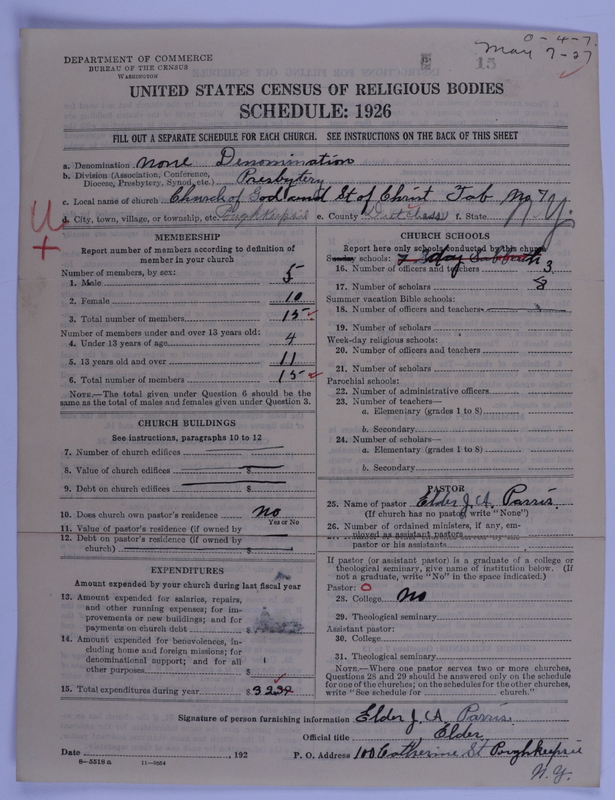 0-4-7.
May 7-27
15
DEPARTMENT OF COMMERCE
BUREAU OF THE CENSUS
WASHINGTON
UNITED STATES CENSUS OF RELIGIOUS BODIES
SCHEDULE: 1926
FILL OUT A SEPARATE SCHEDULE FOR EACH CHURCH. SEE INSTRUCTIONS ON THE BACK OF THIS SHEET
a. Denomination None Denomination
b. Division (Association, Conference, Diocese, Presbytery, Synod, etc.) Presbytery
c. Local name of church Church of God and St of Christ Tab No 7
d. City, town, village, or township, etc. Poughkeepsie e. County Dutchess f. State N.Y.
MEMBERSHIP
Report number of members according to definition of
member in your church
Number of members, by sex:
1. Male 5
2. Female 10
3. Total number of members 15
Number of members under and over 13 years old:
4. Under 13 years of age 4
5. 13 years old and over 11
6. Total number of members 15
NOTE.—The total given under Question 6 should be the
same as the total of males and females given under Question 3.
CHURCH BUILDINGS
See instructions, paragraphs 10 to 12
7. Number of church edifices
8. Value of church edifices $
9. Debt on church edifices $
10. Does church own pastor's residence No
Yes or No
11. Value of pastor's residence (if owned by
12. Debt on pastor's residence (if owned by
church) $
EXPENDITURES
Amount expended by your church during last fiscal year
13. Amount expended for salaries, repairs,
and other running expenses; for im-
provements or new buildings; and for
payments on church debt $
14. Amount expended for benevolences, in-
cluding home and foreign missions; for
denominational support; and for all
other purposes $
15. Total expenditures during year $
CHURCH SCHOOLS
Report here only schools conducted by this church
Sunday schools:
16. Number of officers and teachers 3
17. Number of scholars 8
Summer vacation Bible schools:
18. Number of officers and teachers
19. Number of scholars
Week-day religious schools:
20. Number of officers and teachers
21. Number of scholars
Parochial schools:
22. Number of administrative officers
23. Number of teachers—
a. Elementary (grades 1 to 8)
b. Secondary
24. Number of scholars—
a. Elementary (grades 1 to 8)
b. Secondary
PASTOR
25. Name of pastor Elder J. A. Parris.
(If church has no pastor, write "None")
26. Number of ordained ministers, if any, em-
ployed as assistant pastors
pastor or his assistants
If pastor (or assistant pastor) is a graduate of a college or
theological seminary, give name of institution below. (If
not a graduate, write "No" in the space indicated.)
Pastor:
28. College No
29. Theological seminary
Assistant pastor:
30. College
31. Theological seminary
NOTE.—Where one pastor serves two or more churches,
Questions 28 and 29 should be answered only on the schedule
for one of the churches; on the schedules for the other churches,
write "See schedule for church."
Signature of person furnishing information Elder J. A. Parris.
Official title Elder
Date , 192 P. O. Address 100 Catherine St Poughkeepsie
N. Y.
8—5518a 11—9554